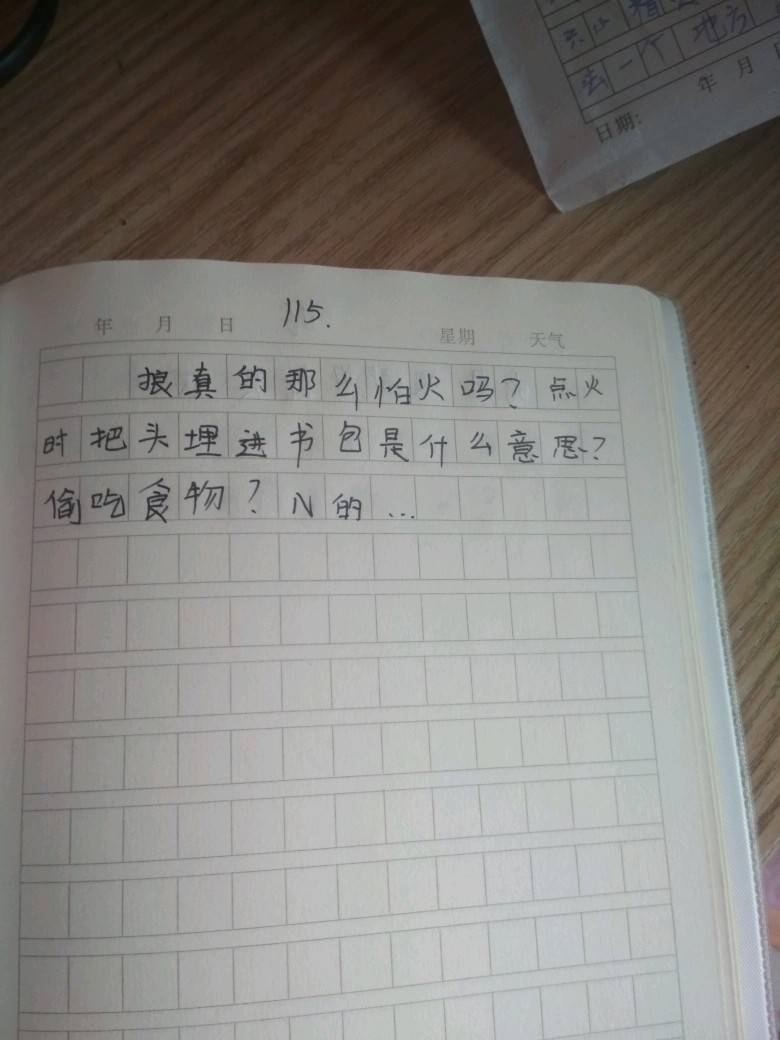 只小猪
去一个地方
年 月
日期:
115.
年 月 日 星期 天气
狼真的那么怕火吗？点火
时把头埋进书包是什么意思？
偷吃食物？N的...